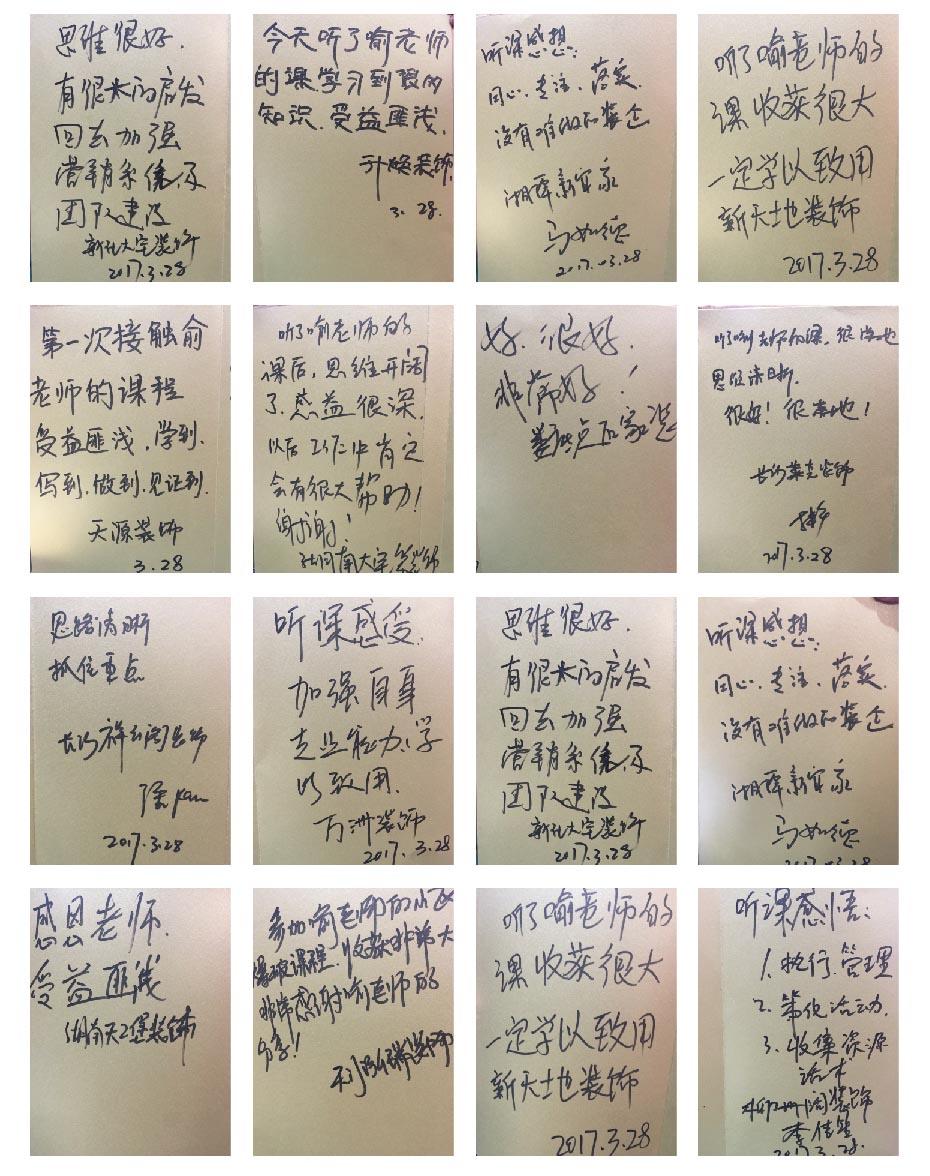 思维很好.
有很大的启发
回去加强
营销系统及
团队建设
2017.3.28
今天听了喻老师
的课学习到很多
知识.受益匪浅.
升焕装饰
3.28.
听课感想:
用心.专注.落实.
没有难做的装企
马如德
2017.03.28
听了喻老师的
课收获很大
一定学以致用
新天地装饰
2017.3.28
第一次接触俞
老师的课程
受益匪浅.学到.
写到.做到.见证到.
天源装饰
3.28
听了喻老师的
课后,思维开阔
了,感益很深.
以后工作中肯定
会有很大帮助!
谢谢!
好.很好.
非常好!
很好!很落地!
2017.3.28
思路清晰
抓住重点
2017.3.28
听课感受.
加强自身
专业能力.学
以致用.
万洲装饰
2017.3.28
思维很好.
有很大的启发
回去加强
营销系统及
团队建设
2017.3.28
听课感想:
用心.专注.落实.
没有难做的装企
马如德
感恩老师.
受益匪浅
参加喻老师的小区
爆破课程.收获非常大
非常感谢喻老师的
分享!!
听了喻老师的
课收获很大
一定学以致用
新天地装饰
2017.3.28
听课感悟:
1.执行.管理
2.策促活动.
3.收集资源
话术
李佳笙
2017.3.28.